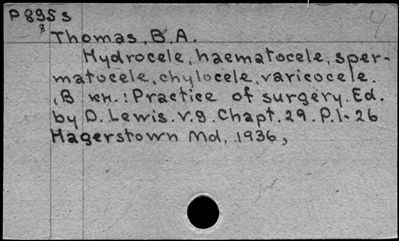 P895s
8
4
Thomas, B.A.
Hydrocele, haematocele, sper-
matocele, chylocele, varicocele.
,В кн.: Practice of surgery. Ed.
by D. Lewis. v.9. Chapt. 29. P.1-26
Hagerstown Md, 1936,